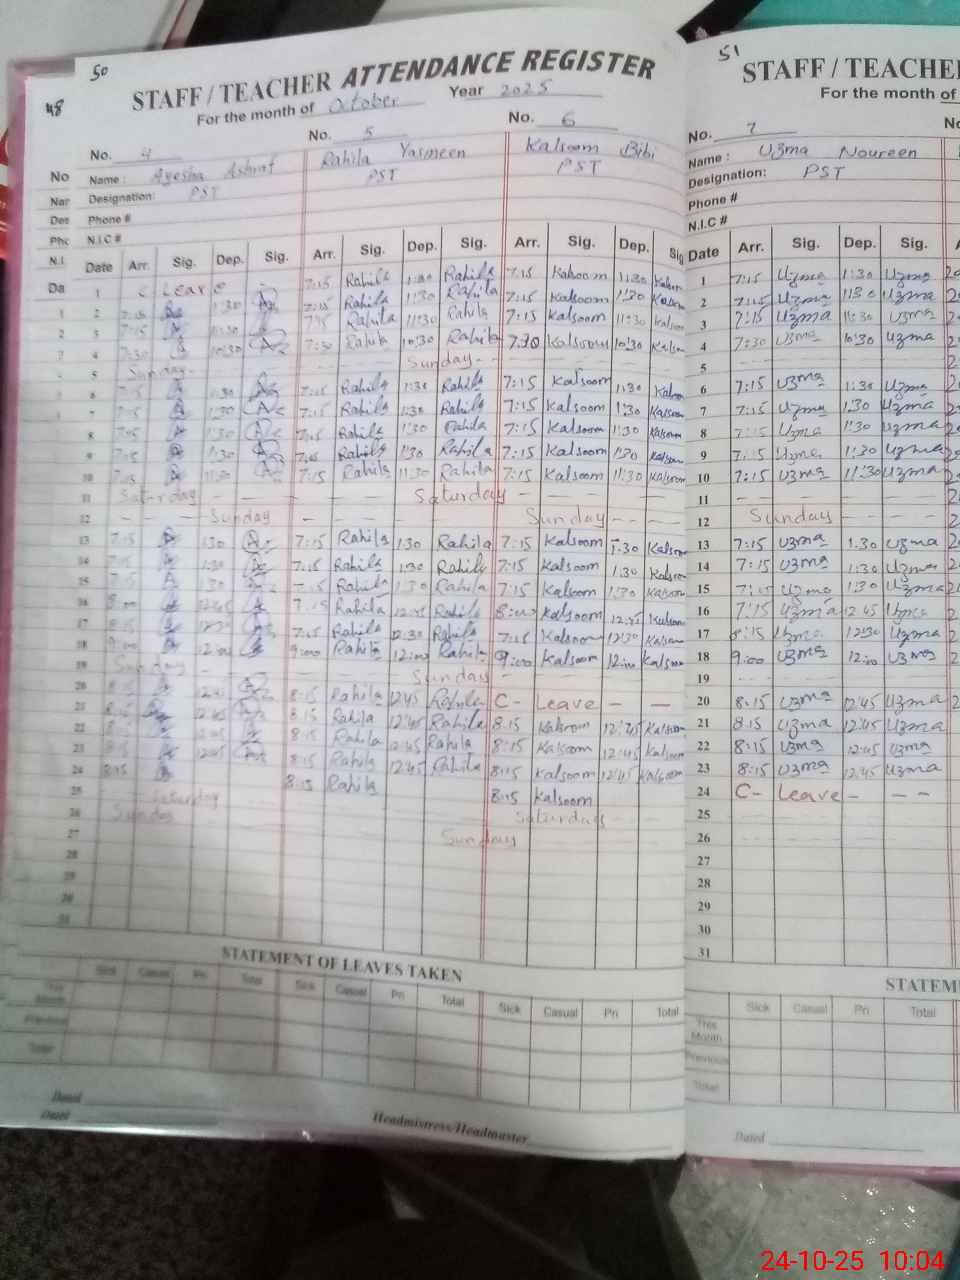 50
48
STAFF / TEACHER ATTENDANCE REGISTER
For the month of October Year 2025
No. 4 No. 5 No. 6
Name : Ayesha Ashraf Rahila Yasmeen Kalsoom Bibi
Designation: PST PST PST
Phone #
N.I.C #
Date Arr. Sig. Dep. Sig. Arr. Sig. Dep. Sig. Arr. Sig. Dep. Sig
1 C Leave - 7:15 Rahila 1:30 Rahila 7:15 Kalsoom 11:30 Kalsoom
2 7:15 1:30 7:15 Rahila 11:30 Rahila 7:15 Kalsoom 1:30 Kalsoom
3 7:15 Rahila 11:30 Rahila 7:15 Kalsoom 11:30 Kalsoom
4 7:30 10:30 7:30 Rahila 10:30 Rahila 7:30 Kalsoom 10:30 Kalsoom
5 Sunday - Sunday - -
6 1:30 7:15 Rahila 1:30 Rahila 7:15 Kalsoom 1:30 Kalsoom
7 7:15 1:30 7:15 Rahila 1:30 Rahila 7:15 Kalsoom 1:30 Kalsoom
8 7:15 1:30 7:15 Rahila 1:30 Rahila 7:15 Kalsoom 11:30 Kalsoom
9 7:15 1:30 7:15 Rahila 1:30 Rahila 7:15 Kalsoom 1:30 Kalsoom
10 7:15 11:30 7:15 Rahila 11:30 Rahila 7:15 Kalsoom 11:30 Kalsoom
11 Saturday - - - Saturday - - -
12 - - Sunday - - - Sunday - - -
13 7:15 1:30 7:15 Rahila 1:30 Rahila 7:15 Kalsoom 1:30 Kalsoom
14 7:15 1:30 7:15 Rahila 1:30 Rahila 7:15 Kalsoom 1:30 Kalsoom
15 7:15 1:30 7:15 Rahila 1:30 Rahila 7:15 Kalsoom 1:30 Kalsoom
16 8:00 12:45 7:15 Rahila 12:45 Rahila 8:00 Kalsoom 12:45 Kalsoom
17 8:15 12:30 7:45 Rahila 12:30 Rahila 7:15 Kalsoom 12:30 Kalsoom
18 9:00 12:00 9:00 Rahila 12:00 Rahila 9:00 Kalsoom 12:00 Kalsoom
19 Sunday - - - Sunday
20 8:15 12:45 8:15 Rahila 12:45 Rahila C- Leave - -
21 8:15 12:45 8:15 Rahila 12:45 Rahila 8:15 Kalsoom 12:45 Kalsoom
22 8:15 12:45 8:15 Rahila 12:45 Rahila 8:15 Kalsoom 12:45 Kalsoom
23 8:15 12:45 8:15 Rahila 12:45 Rahila 8:15 Kalsoom 12:45 Kalsoom
24 8:15 8:15 Rahila 8:15 Kalsoom
25 Saturday Saturday
26 Sunday Sunday
27
28
29
30
31
STATEMENT OF LEAVES TAKEN
Sick Casual Pri Total Sick Casual Pri Total Sick Casual Pri Total
This Month
Previous
Total
Dated
Dated
Headmistress/Headmaster
51
STAFF / TEACHE
For the month of
No. 7 No
Name : Uzma Noureen
Designation: PST
Phone #
N.I.C #
Date Arr. Sig. Dep. Sig.
1 7:15 Uzma 1:30 Uzma
2 7:15 Uzma 11:30 Uzma
3 7:15 Uzma 11:30 Uzma
4 7:30 Uzma 10:30 Uzma
5
6 7:15 Uzma 1:30 Uzma
7 7:15 Uzma 1:30 Uzma
8 7:15 Uzma 1:30 Uzma
9 7:15 Uzma 11:30 Uzma
10 7:15 Uzma 11:30 Uzma
11 - - -
12 Sunday - -
13 7:15 Uzma 1:30 Uzma
14 7:15 Uzma 1:30 Uzma
15 7:15 Uzma 1:30 Uzma
16 7:15 Uzma 12:45 Uzma
17 8:15 Uzma 12:30 Uzma
18 9:00 Uzma 12:00 Uzma
19 - - -
20 8:15 Uzma 12:45 Uzma
21 8:15 Uzma 12:45 Uzma
22 8:15 Uzma 12:45 Uzma
23 8:15 Uzma 12:45 Uzma
24 C- Leave - - -
25
26
27
28
29
30
31
STATEM
Sick Casual Pri Total
This Month
Previous
Total
Dated
24-10-25 10:04